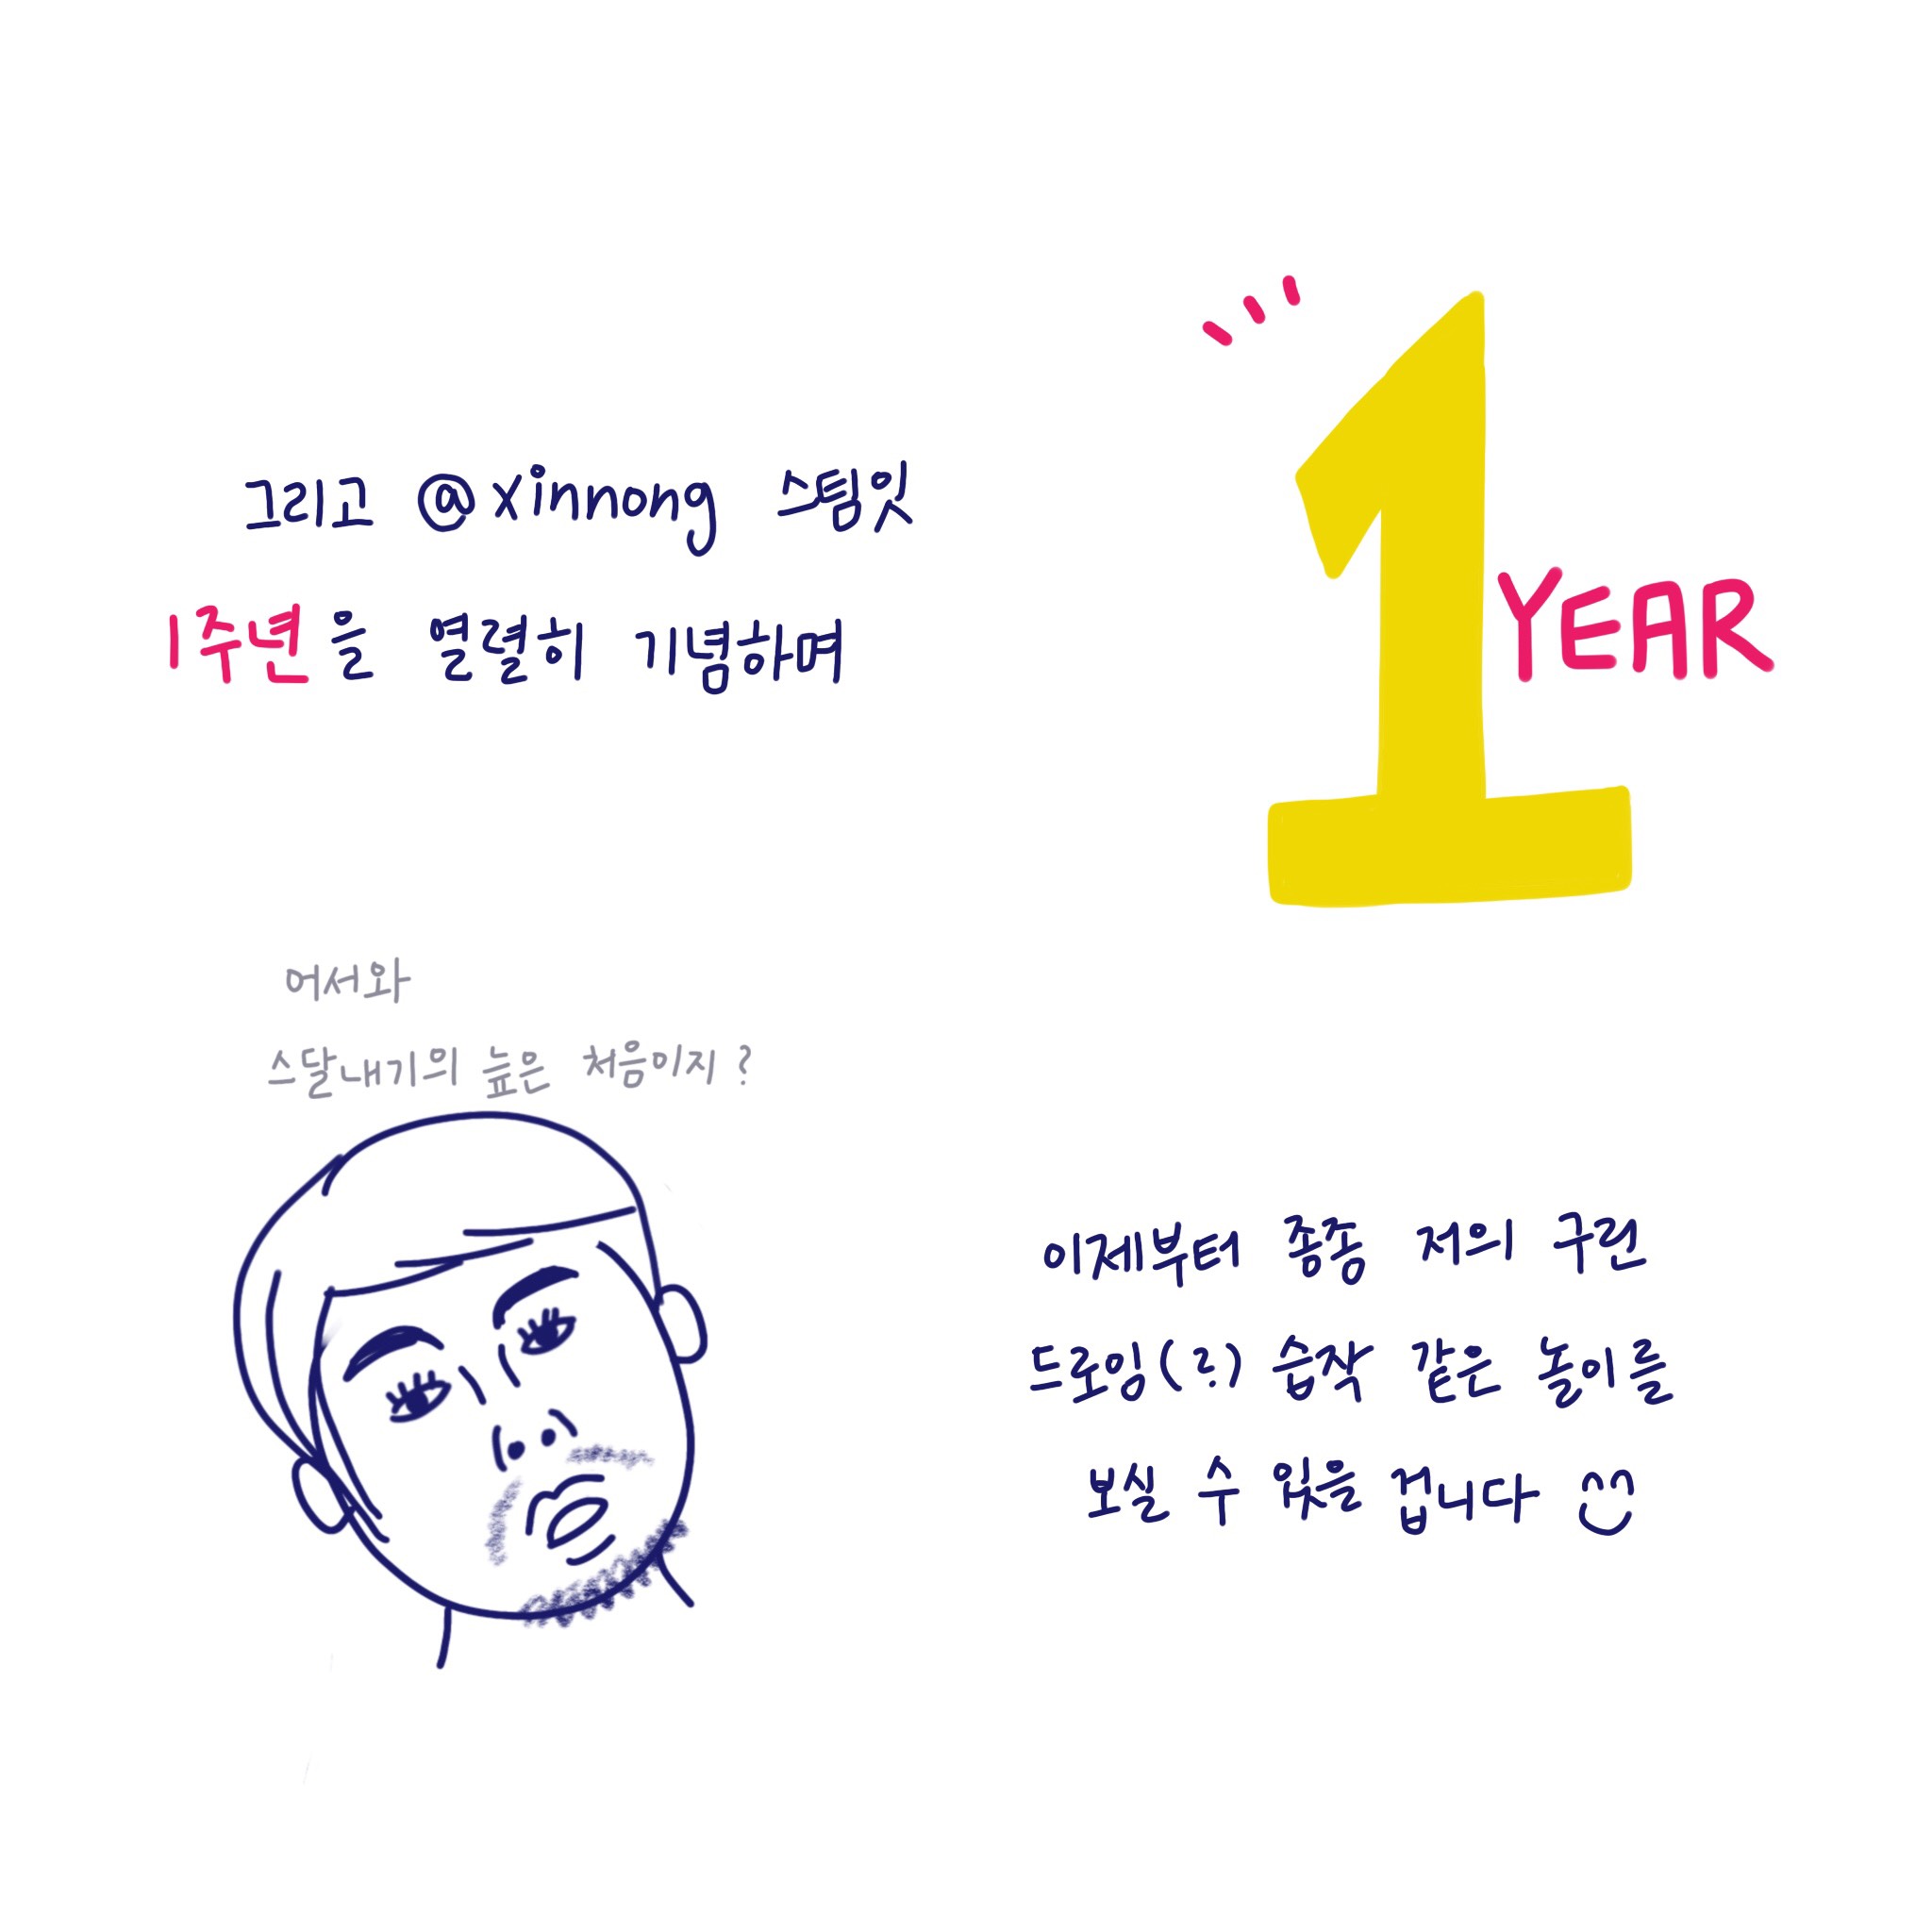 그리고 @xinnong 스팀잇
1주년을 열렬히 기념하며
1
YEAR
어서와
스달내기의 높은 처음이지?
이제부터 종종 저의 구린
드로잉(?) 습작 같은 놀이를
보실 수 있을 겁니다